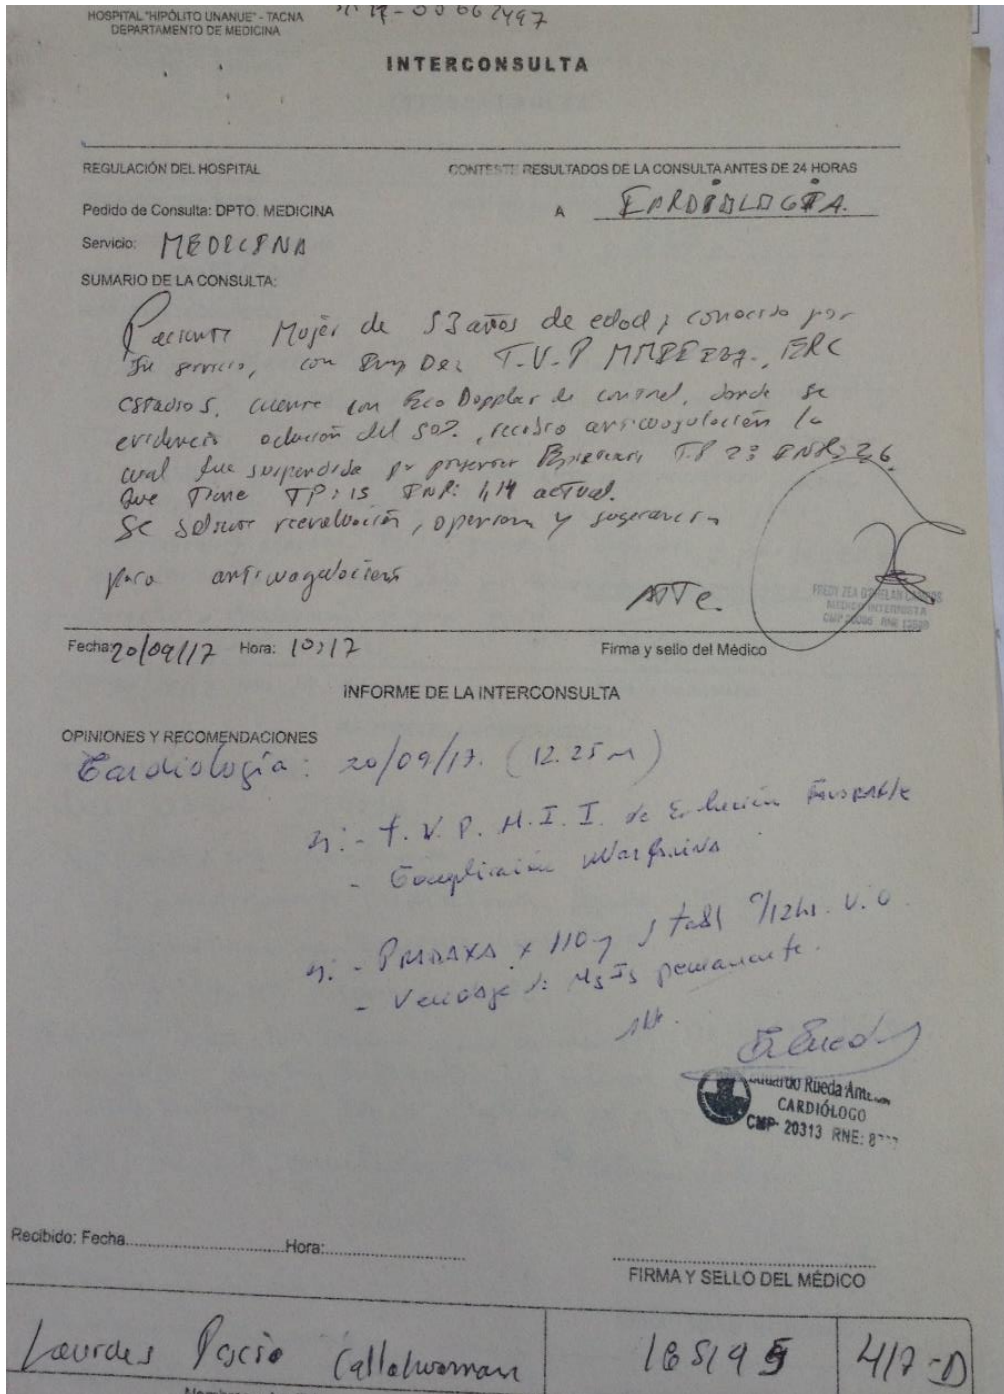 HOSPITAL "HIPÓLITO UNANUE" - TACNA
DEPARTAMENTO DE MEDICINA
INTERCONSULTA
REGULACIÓN DEL HOSPITAL
CONTESTE RESULTADOS DE LA CONSULTA ANTES DE 24 HORAS
Pedido de Consulta: DPTO. MEDICINA A CARDIOLOGIA.
Servicio: MEDICINA
SUMARIO DE LA CONSULTA:
Paciente Mujer de 53 años de edad, conocida por
su servicio, con T.V.P ERC
estadio 5, cuenta con Eco Doppler de control, donde se
evidencia oclusión del 50%, recibió anticoagulación la
cual fue suspendida por presentar INR:
que tiene TP: 15 INR: 1,14 actual.
Se solicita reevaluación, opinion y sugerencia
para anticoagulación
ATTe.
MEDICO INTERNISTA
Fecha: 20/09/17 Hora: 10:17
Firma y sello del Médico
INFORME DE LA INTERCONSULTA
OPINIONES Y RECOMENDACIONES
Cardiología: 20/09/17. (12.25 m)
- T.V.P. M.I.I. de Evolución Favorable
- Complicación Warfarina
- PRADAXA x 110 1 tabl c/12hs. V.O.
- Vendaje de permanente.
Eduardo Rueda
CARDIÓLOGO
CMP 20313 RNE:
Recibido: Fecha Hora:
FIRMA Y SELLO DEL MÉDICO
Lourdes 417-D